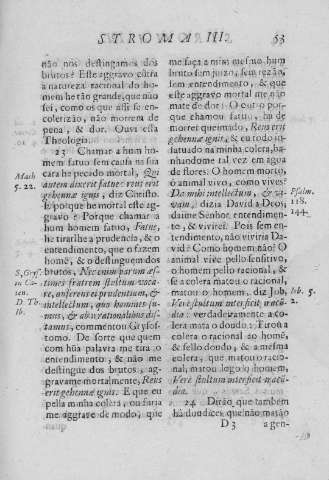 STROMA III.
63
não nos destingamos dos
brutos? Este aggravo cõtra
a natureza racional do ho-
mem he tão grande, que não
sei, como os que assi se en-
colerizão, não morrem de
pena, & dor. Ouvi esta
Theologia.
23 Chamar a hum ho-
mem fatuo sem causa na sua
cara he peccado mortal, Qui
autem dixerit fatue: reus erit
gehennæ ignis, diz Christo.
E porque he mortal este ag-
gravo? Porque chamar a
hum homem fatuo, Fatue,
he tirarlhe a prudencia, & o
entendimento, que o fazem
homẽ, & o destinguem dos
brutos,
times fratrem stultum voca-
re, auferens ei prudentiam, &
intellectum, quo homines su-
mus, & ab irrationabilibus dis-
tamus, commentou Crysos-
tomo. De sorte que quem
com hũa palavra me tira o
entendimento, & não me
destingue dos brutos, ag-
gravame mortalmente, Reus
erit gehennæ ignis. E que eu
pella minha colera, ou furia
me aggrave de modo, que
Math
5. 22.
D. Th.
me faça a mim mesmo hum
bruto sem juizo, sem rezão,
sem entendimento, & que
este aggravo mortal me não
mate de dor! O outro por-
que chamou fatuo, ha de
morrer queimado, Reus erit
gehennæ ignis, & eu todo in-
fatuado na minha colera, ba-
nhandome tal vez em agoa
de flores. O homem morto,
o animal vivo, como vives?
Da mihi intellectum, & vi-
vam, dizia David a Deos,
daime Senhor entendimen-
to, & viverei. Pois sem en-
tendimento, não vivirá Da-
vid? Como homem não! O
animal vive pello sensitivo,
o homem pello racional, &
se a colera matou o racional,
matou o homem, diz Job,
Verè stultum interficit iracũ-
dia: verdadeyramente a co-
lera mata o doudo: Tirou a
colera o racional ao homẽ,
& fello doudo, & a mesma
colera, que matou o racio-
nal, matou logo o homem,
Verè stultum interficit iracũ-
dia.
24 Dirão, que tambem
ha doudices que não matão
Psalm.
118.
144.
Iob. 5.
2.
D 3
a gen-